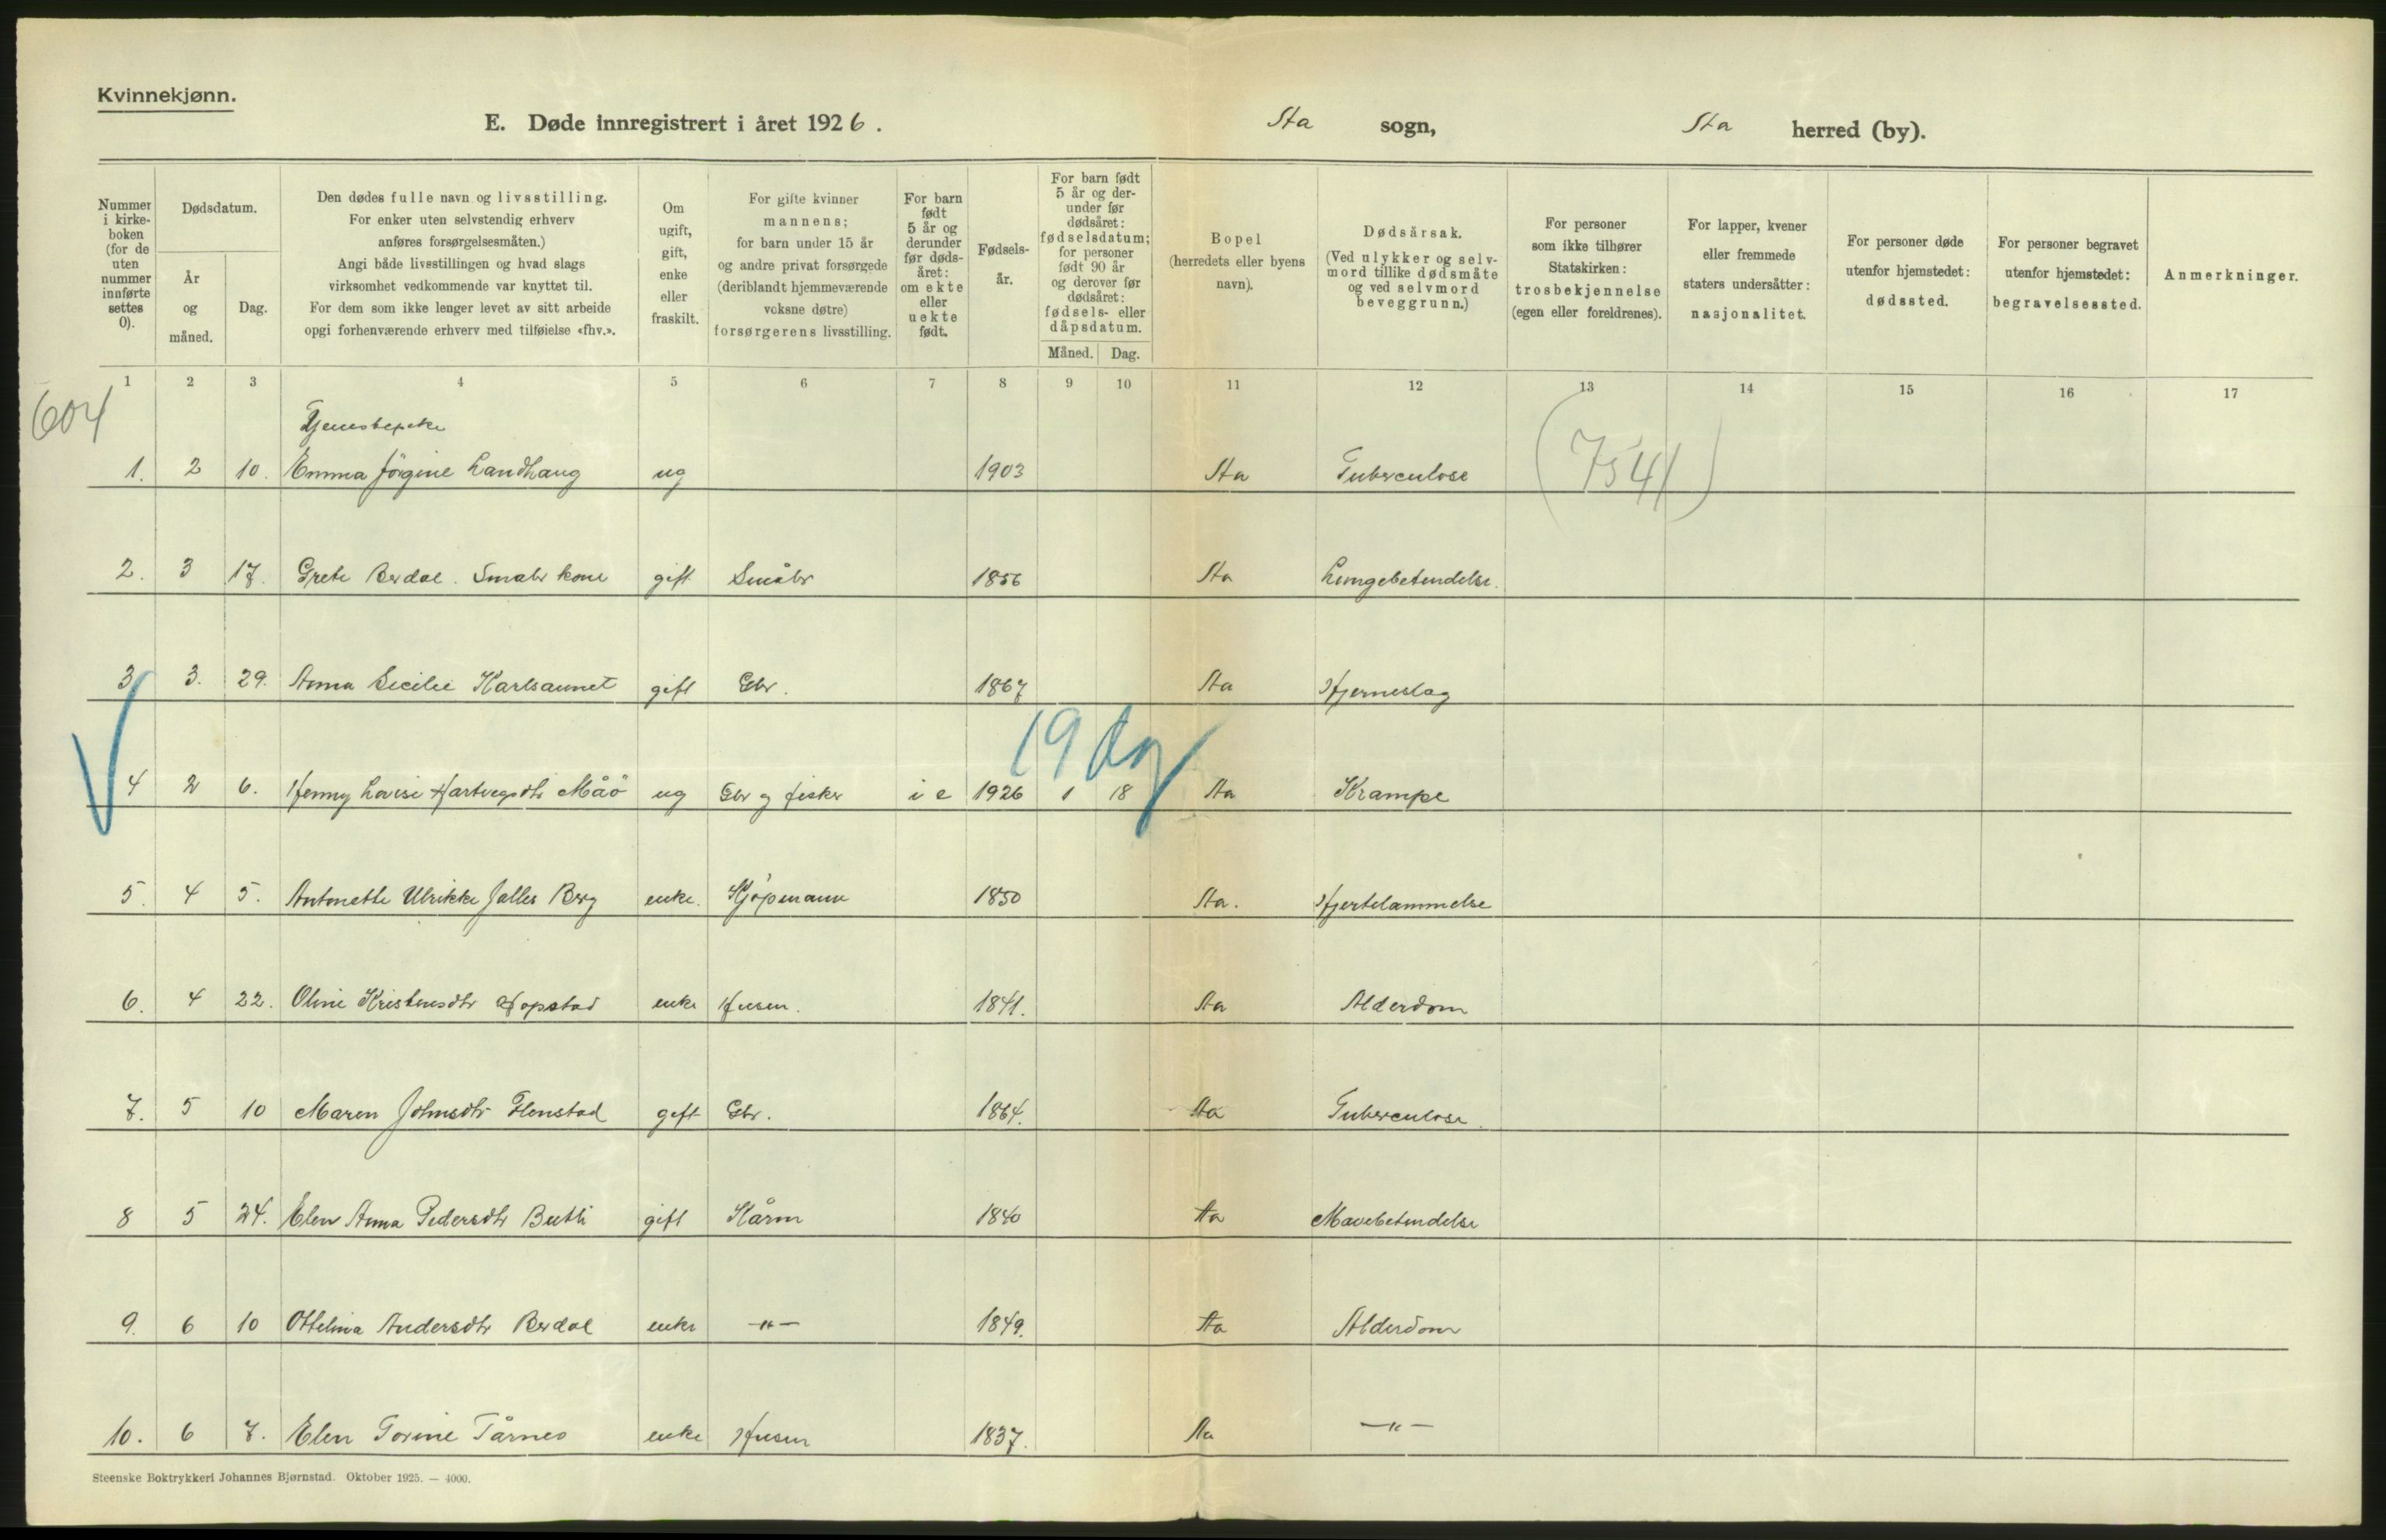 Kvinnekjønn.
E. Døde innregistrert i året 1926. Sta sogn, Sta herred (by).
Nummer i kirke- boken (for de uten nummer innførte settes 0).
Dødsdatum.
År og måned.
Dag.
Den dødes fulle navn og livsstilling.
For enker uten selvstendig erhverv
anføres forsørgelsesmåten.)
Angi både livsstillingen og hvad slags
virksomhet vedkommende var knyttet til.
For dem som ikke lenger levet av sitt arbeide
opgi forhenværende erhverv med tilføielse «fhv.».
Om ugift, gift, enke eller fraskilt.
For gifte kvinner
mannens;
for barn under 15 år
og andre privat forsørgede
(deriblandt hjemmeværende
voksne døtre)
forsørgerens livsstilling.
For barn født 5 år og derunder før døds- året: om ekte eller uekte født.
Fødsels- år.
For barn født 5 år og der- under før dødsåret: fødselsdatum; for personer født 90 år og derover før dødsåret: fødsels- eller dåpsdatum.
Måned. Dag.
Bopel
(herredets eller byens
navn).
Dødsårsak.
(Ved ulykker og selv-
mord tillike dødsmåte
og ved selvmord
beveggrunn.)
For personer
som ikke tilhører
Statskirken:
trosbekjennelse
(egen eller foreldrenes).
For lapper, kvener
eller fremmede
staters undersåtter:
nasjonalitet.
For personer døde
utenfor hjemstedet:
dødssted.
For personer begravet
utenfor hjemstedet:
begravelsessted.
Anmerkninger.
1 2 3 4 5 6 7 8 9 10 11 12 13 14 15 16 17
604
(7541)
1. 2 10. Emma Jörgine Landhaug ug 1903 Sta Tuberculose
2. 3 17. Grete Berdal. Smabr kone gift Småbr 1856 Sta Lungebetendelse.
3 3. 29. Anna Secilie Karlsaunet gift Gbr. 1867 Sta Hjerneslag
19 dag
4 2 6. Henny Lovise Hartvegsdtr Måö ug Gbr og fisker i e 1926 1 18 Sta Krampe
5. 4 5. Antonette Ulrikke Jalles Berg enke. Kjöpmann 1850 Sta. Hjertelammelse
6. 4 22. Oline Kristensdtr Hopstad enke Husm. 1841. Sta Alderdom
7. 5 10 Maren Johnsdtr Flenstad gift Gbr. 1864. Sta Tuberculose.
8 5 24. Elen Anna Pedersdtr Butli gift Kårm 1840 Sta Mavebetendelse
9. 6 10 Ottelina Andersdtr Berdal enke —"— 1849. Sta Alderdom
10. 6 7. Elen Torine Tårnes enke Husm 1837. Sta —"—
Steenske Boktrykkeri Johannes Bjørnstad. Oktober 1925. — 4000.